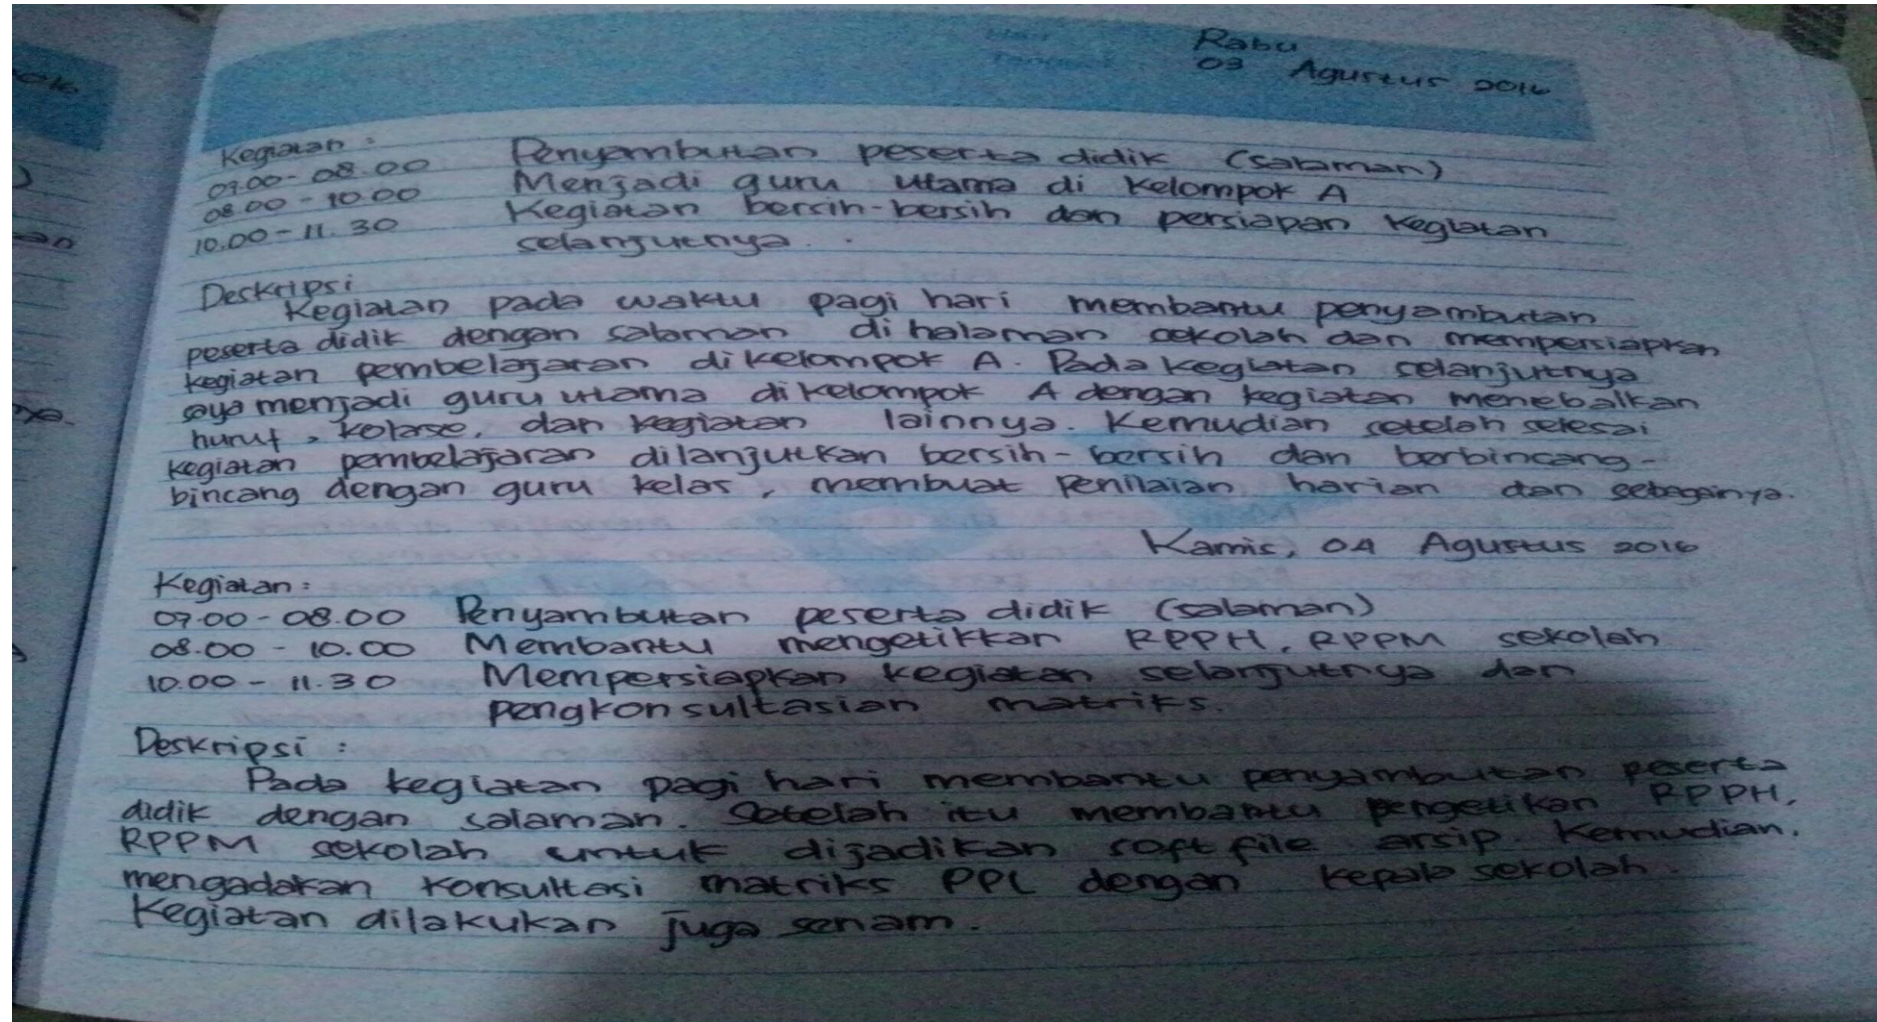 Rabu
03 Agustus 2016
Kegiatan :
07.00 - 08.00 Penyambutan peserta didik (salaman)
08.00 - 10.00 Menjadi guru utama di Kelompok A
10.00 - 11.30 Kegiatan bersih-bersih dan persiapan kegiatan
selanjutnya.
Deskripsi
Kegiatan pada waktu pagi hari membantu penyambutan
peserta didik dengan salaman di halaman sekolah dan mempersiapkan
kegiatan pembelajaran di kelompok A. Pada kegiatan selanjutnya
saya menjadi guru utama di kelompok A dengan kegiatan menebalkan
huruf, kolase, dan kegiatan lainnya. Kemudian setelah selesai
kegiatan pembelajaran dilanjutkan bersih-bersih dan berbincang-
bincang dengan guru kelas, membuat penilaian harian dan sebagainya.
Kamis, 04 Agustus 2016
Kegiatan :
07.00 - 08.00 Penyambutan peserta didik (salaman)
08.00 - 10.00 Membantu mengetikkan RPPH, RPPM sekolah
10.00 - 11.30 Mempersiapkan kegiatan selanjutnya dan
pengkonsultasian matriks.
Deskripsi :
Pada kegiatan pagi hari membantu penyambutan peserta
didik dengan salaman. Setelah itu membantu pengetikan RPPH,
RPPM sekolah untuk dijadikan soft file arsip. Kemudian,
mengadakan konsultasi matriks PPL dengan kepala sekolah.
Kegiatan dilakukan juga senam.